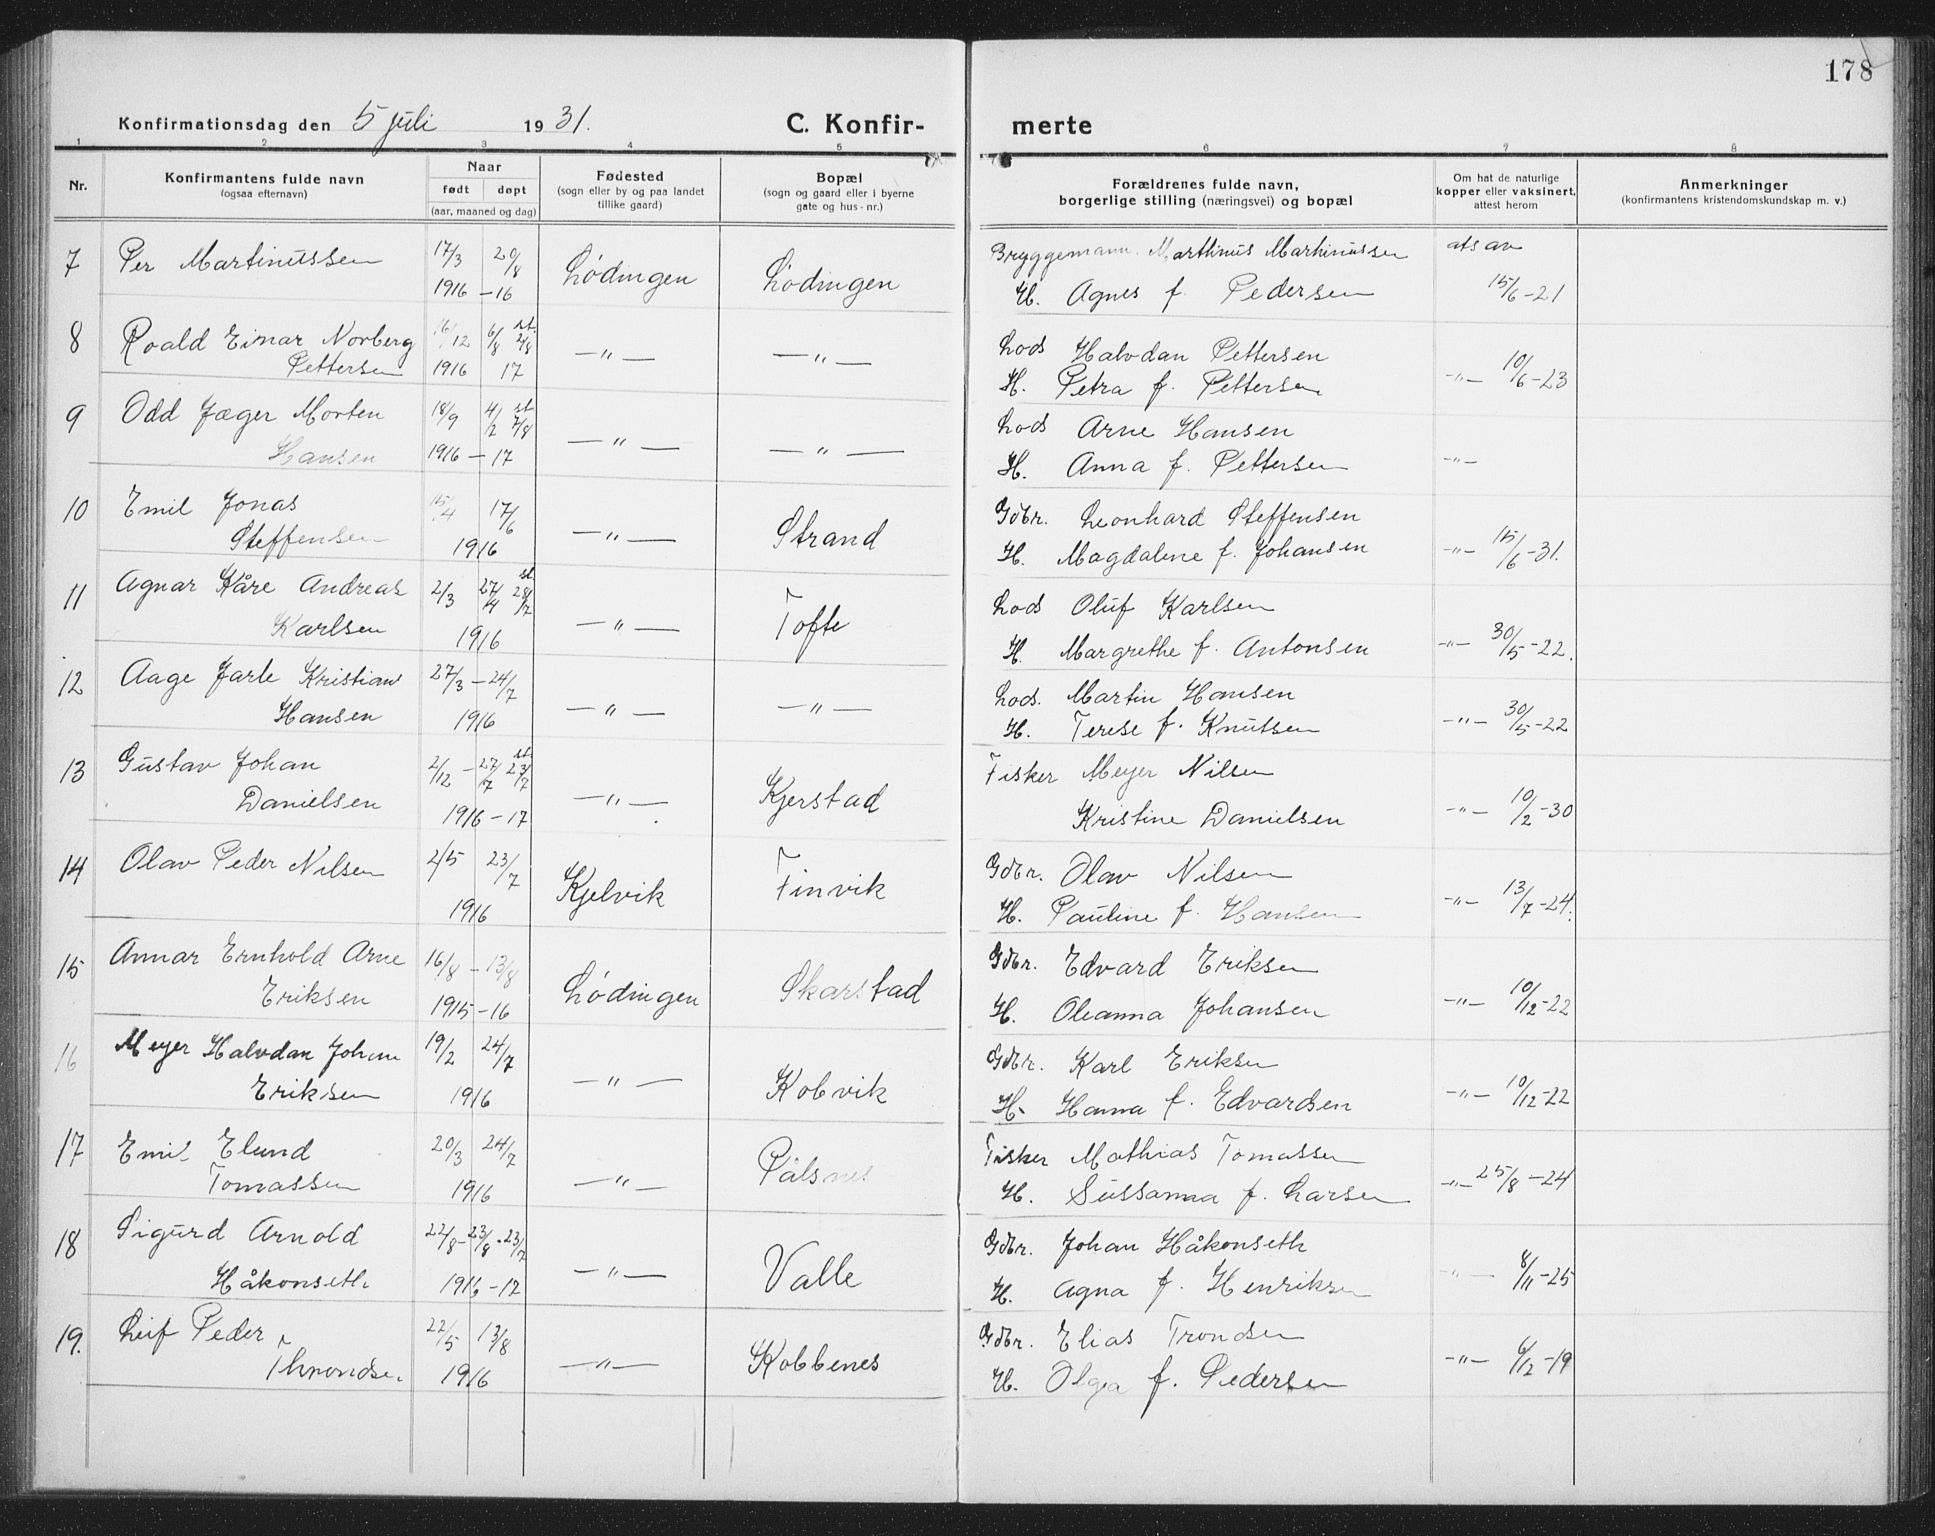 178
Konfirmationsdag den 5 juli 1931.
C. Konfirmerte
1 2 3 4 5 6 7 8
Nr.
Konfirmantens fulde navn
(ogsaa efternavn)
Naar
født døpt
(aar, maaned og dag)
Fødested
(sogn eller by og paa landet
tillike gaard)
Bopæl
(sogn og gaard eller i byerne
gate og hus-nr.)
Forældrenes fulde navn,
borgerlige stilling (næringsvei) og bopæl
Om hat de naturlige
kopper eller vaksinert,
attest herom
Anmerkninger
(konfirmantens kristendomskundskap m. v.)
7 Per Martinussen 17/3 20/8 Lødingen Lødingen Bryggemann. Marthinus Martinussen ats av
1916 - 16 H. Agnes f. Pedersen 15/6-21
8 Roald Einar Norberg 16/12 6/8 st. 2/8 — " — — " — Lods Halvdan Pettersen
Pettersen 1916 17 H. Petra f. Pettersen -"- 10/6-23
9 Odd Jæger Morten 18/9 4/2 st. 7/8 — " — — " — Lods Arne Hansen
Hansen 1916 - 17 H. Anna f. Pettersen -"-
10 Emil Jonas 15/4 17/6 — " — Strand Gdbr. Leonhard Steffensen
Steffensen 1916 H. Magdalene f. Johansen -"- 15/6-31.
11 Agnar Kåre Andreas 2/3 27/4 st. 28/7 — " — Tofte Lods Oluf Karlsen
Karlsen 1916 H. Margrethe f. Antonsen -"- 30/5-22.
12 Aage Jarle Kristian 27/3 - 24/7 — " — — " — Lods. Martin Hansen
Hansen 1916 H. Terese f. Knutsen -"- 30/5-22
13 Gustav Johan 2/12 - 27/7 st. 23/7 — " — Kjerstad Fisker Meyer Nilsen
Danielsen 1916 - 17 Kristine Danielsen -"- 10/2-30
14 Olav Peder Nilsen 2/5 23/7 Kjelvik Finvik Gdbr. Olav Nilsen
1916 H. Pauline f. Hansen -"- 13/7-24.
15 Annar Ernhold Arne 16/8 - 13/8 Lødingen Skarstad Gdbr. Edvard Eriksen
Eriksen 1915 - 16 H. Oleanna Johansen -"- 10/12-22
16 Meyer Halvdan Johan 19/2 24/7 — " — Kobvik Gdbr. Karl Eriksen
Eriksen 1916 H. Hanna f. Edvardsen -"- 10/12-22
17 Emil Elund 20/3 24/7 — " — Pålsnes Fisker Mathias Tomassen
Tomassen 1916 H. Sussanna f. Larsen -"- 25/8-24
18 Sigurd Arnold 22/8 - 23/8 - 23/7 — " — Valle Gdbr. Johan Håkonseth
Håkonseth 1916 - 17 H. Agna f. Henriksen -"- 8/11-25
19. Leif Peder 22/5 13/8 — " — Kobbenes Gdbr. Elias Trondsen
Throndsen 1916 H. Olga f. Pedersen -"- 6/12-19